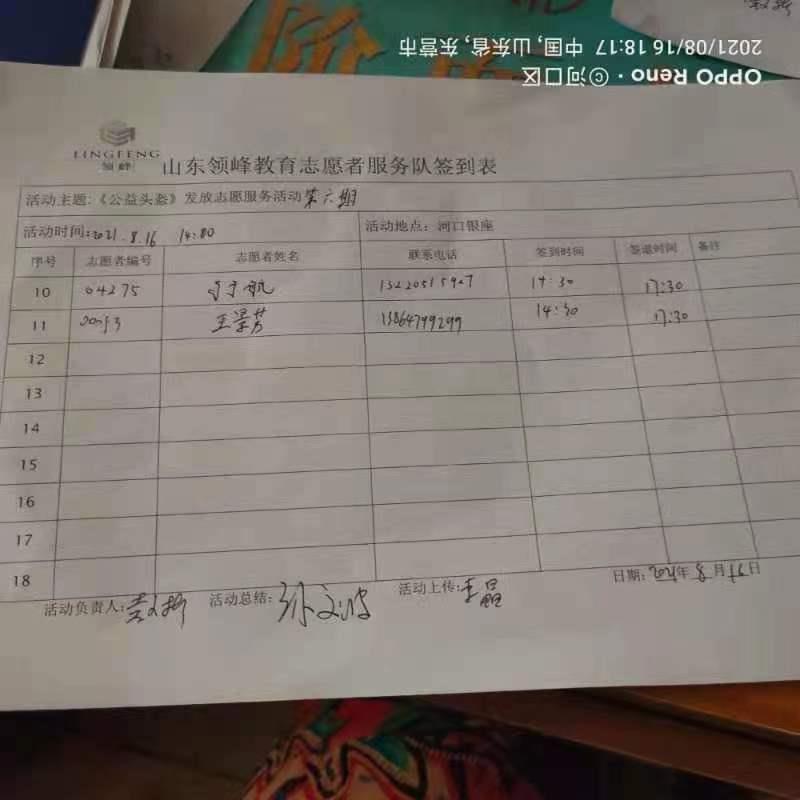 OPPO Reno · ©河口区
2021/08/16 18:17 中国, 山东省, 东营市
LINGFENG
领峰
山东领峰教育志愿者服务队签到表
活动主题:《公益头盔》发放志愿服务活动 第六期
活动时间: 2021.8.16 14:00 活动地点: 河口银座
序号 志愿者编号 志愿者姓名 联系电话 签到时间 签退时间 备注
10 04275 于航 14:30 17:30
11 王景芳 13864799299 14:30 17:30
12
13
14
15
16
17
18
活动负责人: 活动总结: 孙文波 活动上传: 李晶 日期: 2021年8月16日